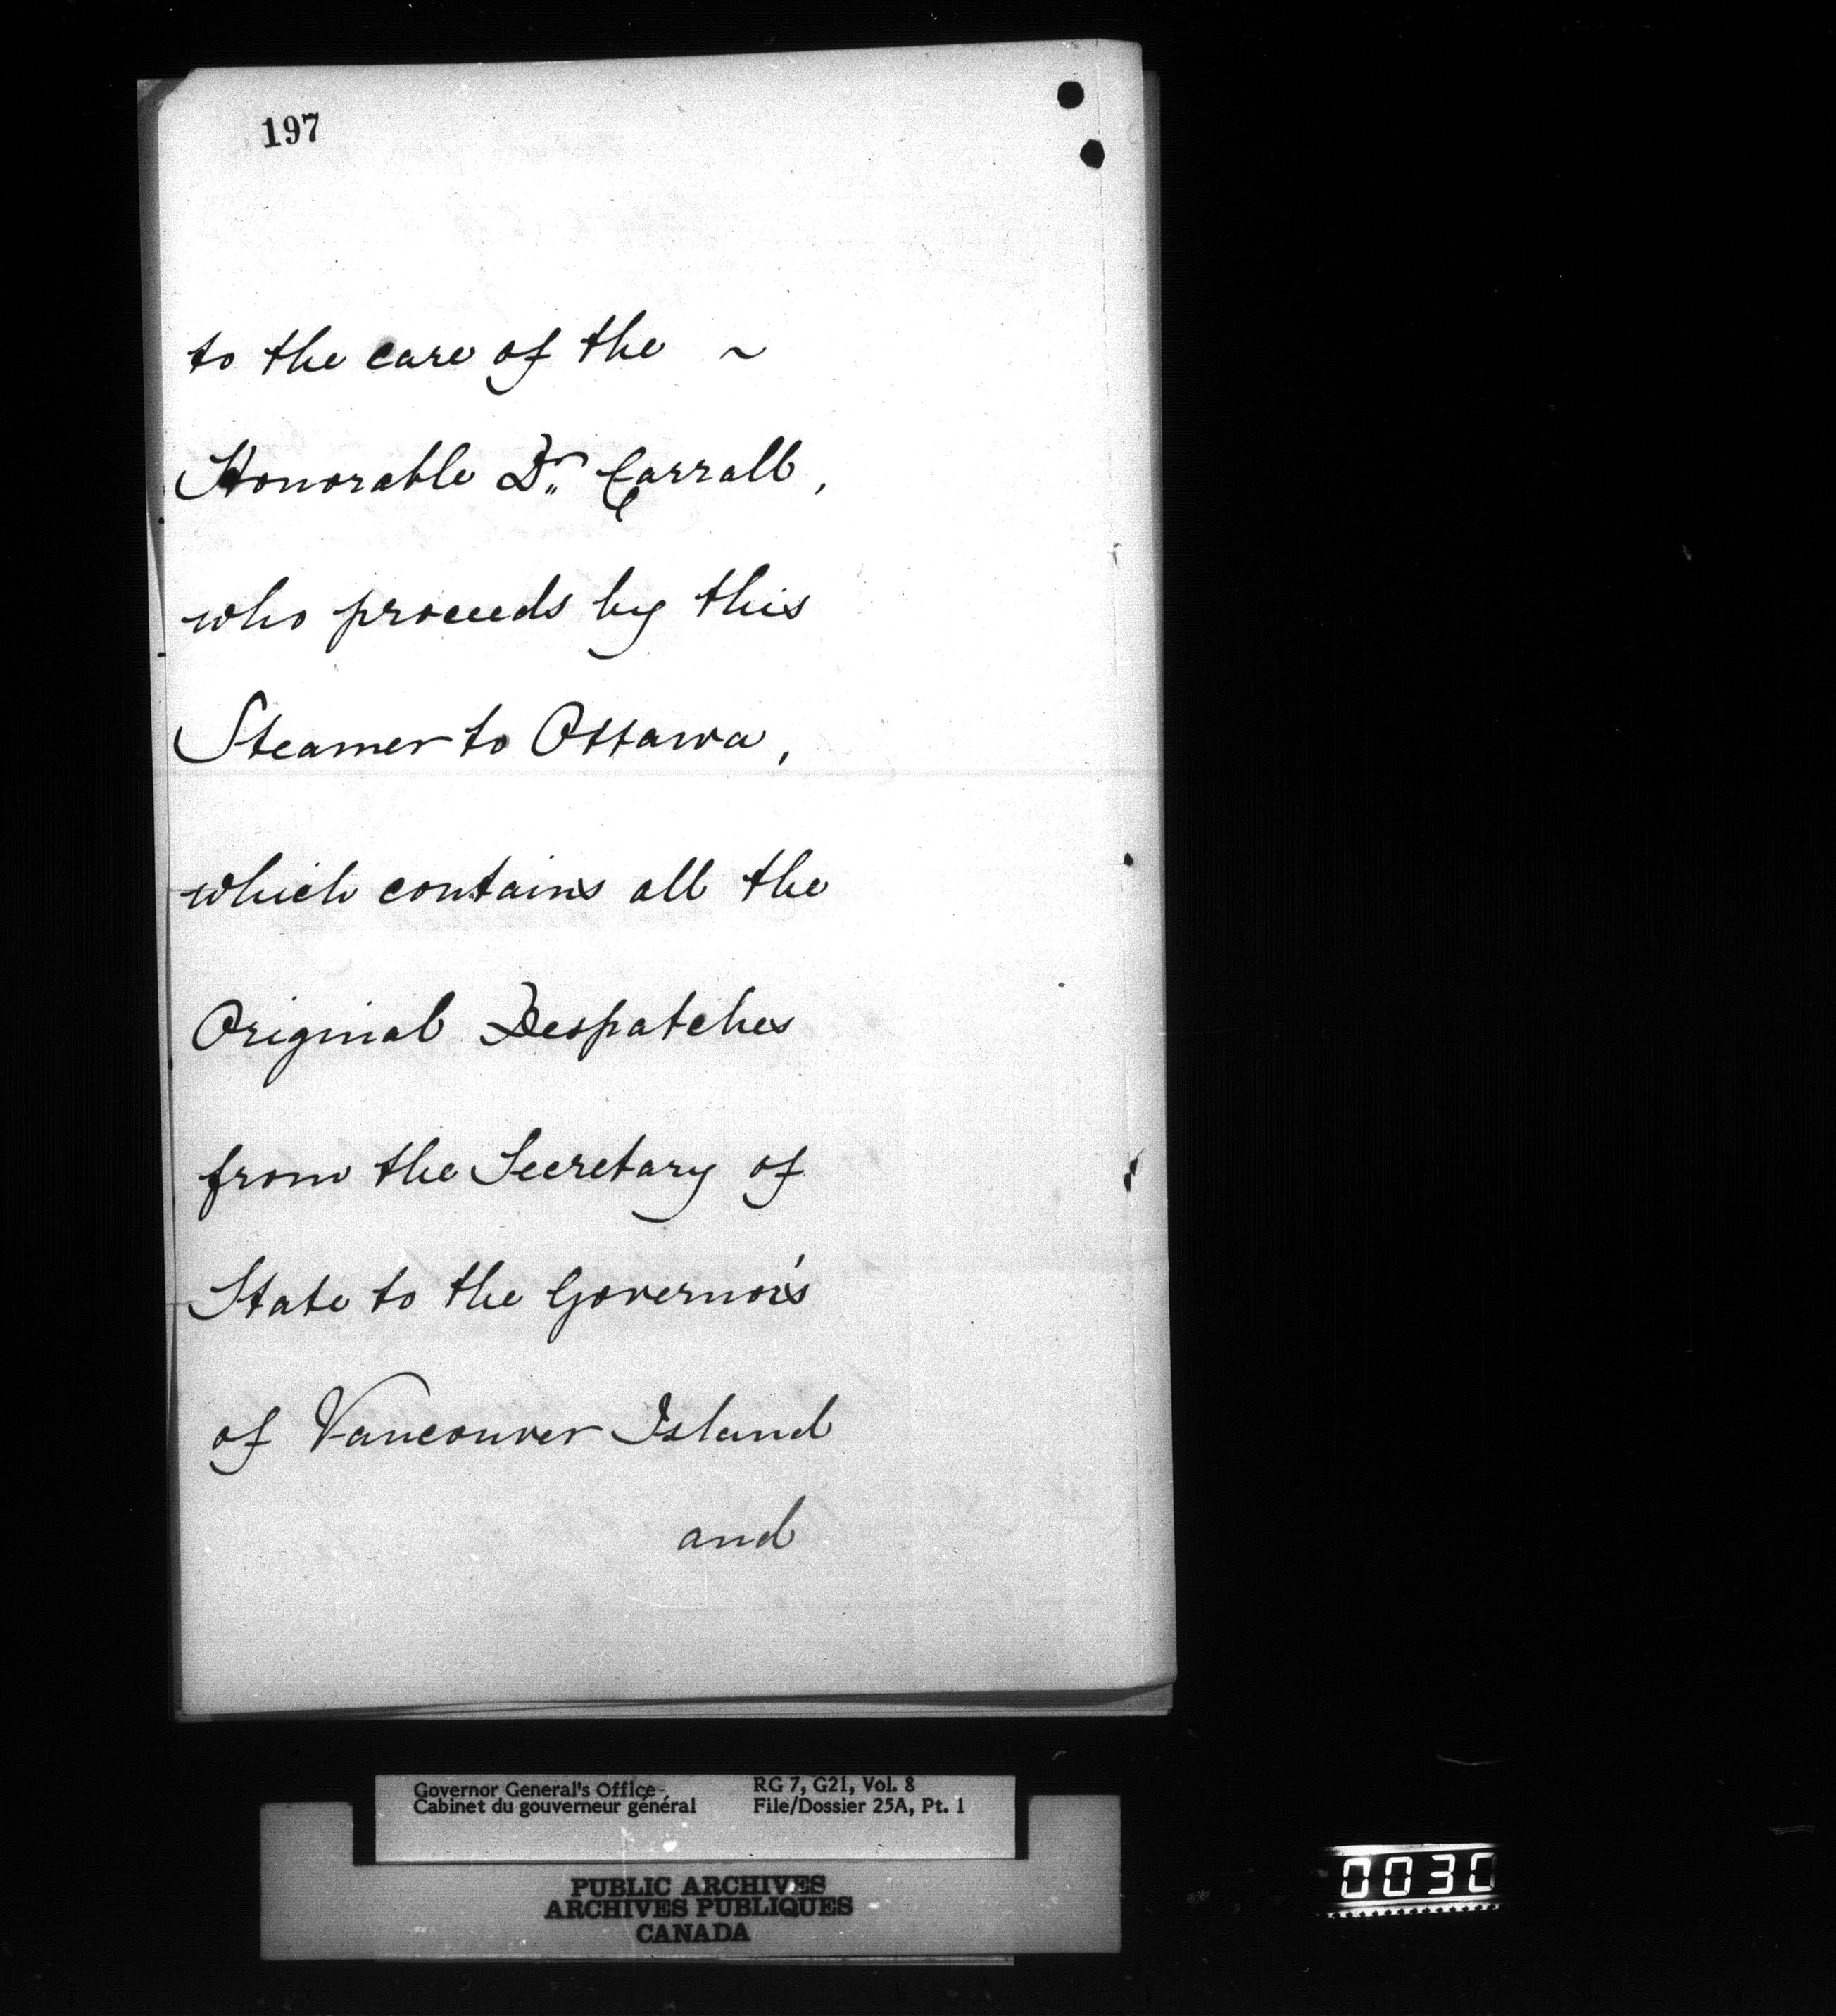 197
to the care of the ~
Honorable Dr. Carrall,
who proceeds by this
Steamer to Ottawa,
which contains all the
Original Despatches
from the Secretary of
State to the Governor's
of Vancouver Island
and
Governor General's Office RG 7, G21, Vol. 8
Cabinet du gouverneur général File/Dossier 25A, Pt. 1
PUBLIC ARCHIVES
ARCHIVES PUBLIQUES
CANADA
0030